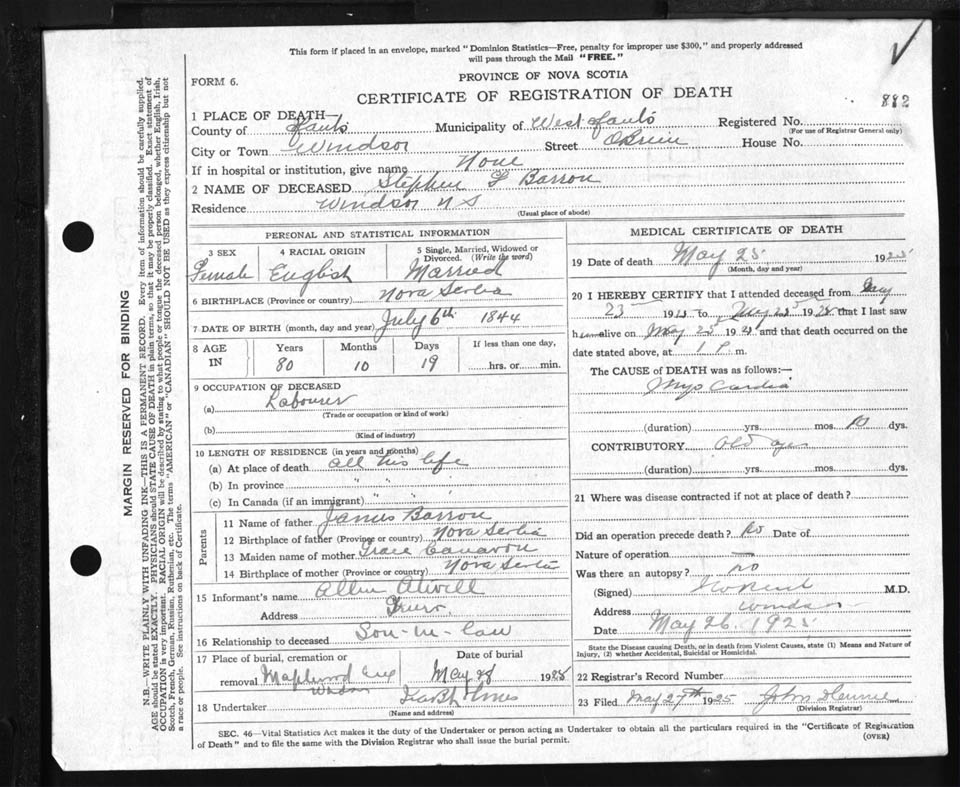 This form if placed in an envelope, marked "Dominion Statistics—Free, penalty for improper use $300," and properly addressed
will pass through the Mail "FREE."
FORM 6.
PROVINCE OF NOVA SCOTIA
CERTIFICATE OF REGISTRATION OF DEATH
882
1 PLACE OF DEATH—
County of Hants Municipality of West Hants Registered No.
(For use of Registrar General only)
City or Town Windsor Street OBrien House No.
If in hospital or institution, give name None
2 NAME OF DECEASED Stephen Barron
Residence Windsor N S
(Usual place of abode)
PERSONAL AND STATISTICAL INFORMATION
3 SEX 4 RACIAL ORIGIN 5 Single, Married, Widowed or Divorced. (Write the word)
Female English Married
6 BIRTHPLACE (Province or country) Nova Scotia
7 DATE OF BIRTH (month, day and year) July 6th 1844
8 AGE IN Years Months Days If less than one day,
80 10 19 hrs. or min.
9 OCCUPATION OF DECEASED
(a) Labourer
(Trade or occupation or kind of work)
(b)
(Kind of industry)
10 LENGTH OF RESIDENCE (in years and months)
(a) At place of death all his life
(b) In province " " "
(c) In Canada (if an immigrant) " " "
Parents
11 Name of father James Barron
12 Birthplace of father (Province or country) Nova Scotia
13 Maiden name of mother Grace
14 Birthplace of mother (Province or country) Nova Scotia
15 Informant's name Allen Atwell
Address Truro
16 Relationship to deceased Son-in-law
17 Place of burial, cremation or removal Date of burial
Maplewood Windsor May 28 1925
18 Undertaker
(Name and address)
MEDICAL CERTIFICATE OF DEATH
19 Date of death May 25 1925
(Month, day and year)
20 I HEREBY CERTIFY that I attended deceased from May
23 1925 to May 25 1925 that I last saw
him alive on May 25 1925 and that death occurred on the
date stated above, at 1 P. m.
The CAUSE of DEATH was as follows:—
Myo Cardia
(duration) yrs. mos. 10 dys.
CONTRIBUTORY Old age
(duration) yrs. mos. dys.
21 Where was disease contracted if not at place of death?
Did an operation precede death? No Date of
Nature of operation —
Was there an autopsy? no
(Signed) M.D.
Address Windsor
Date May 26. 1925
State the Disease causing Death, or in death from Violent Causes, state (1) Means and Nature of
Injury, (2) whether Accidental, Suicidal or Homicidal.
22 Registrar's Record Number
23 Filed May 27th 1925 John
(Division Registrar)
SEC. 46—Vital Statistics Act makes it the duty of the Undertaker or person acting as Undertaker to obtain all the particulars required in the "Certificate of Registration
of Death" and to file the same with the Division Registrar who shall issue the burial permit.
(OVER)
MARGIN RESERVED FOR BINDING
N.B.—WRITE PLAINLY WITH UNFADING INK—THIS IS A PERMANENT RECORD. Every item of information should be carefully supplied.
AGE should be stated EXACTLY. PHYSICIANS should STATE CAUSE OF DEATH in plain terms, so that it may be properly classified. Exact statement of
OCCUPATION is very important. RACIAL ORIGIN will be described by stating to what people or tongue the deceased person belonged, whether English, Irish,
Scotch, French, German, Russian, Ruthenian, etc. The terms "AMERICAN" or "CANADIAN" SHOULD NOT BE USED as they express citizenship but not
a race or people. See instructions on back of Certificate.